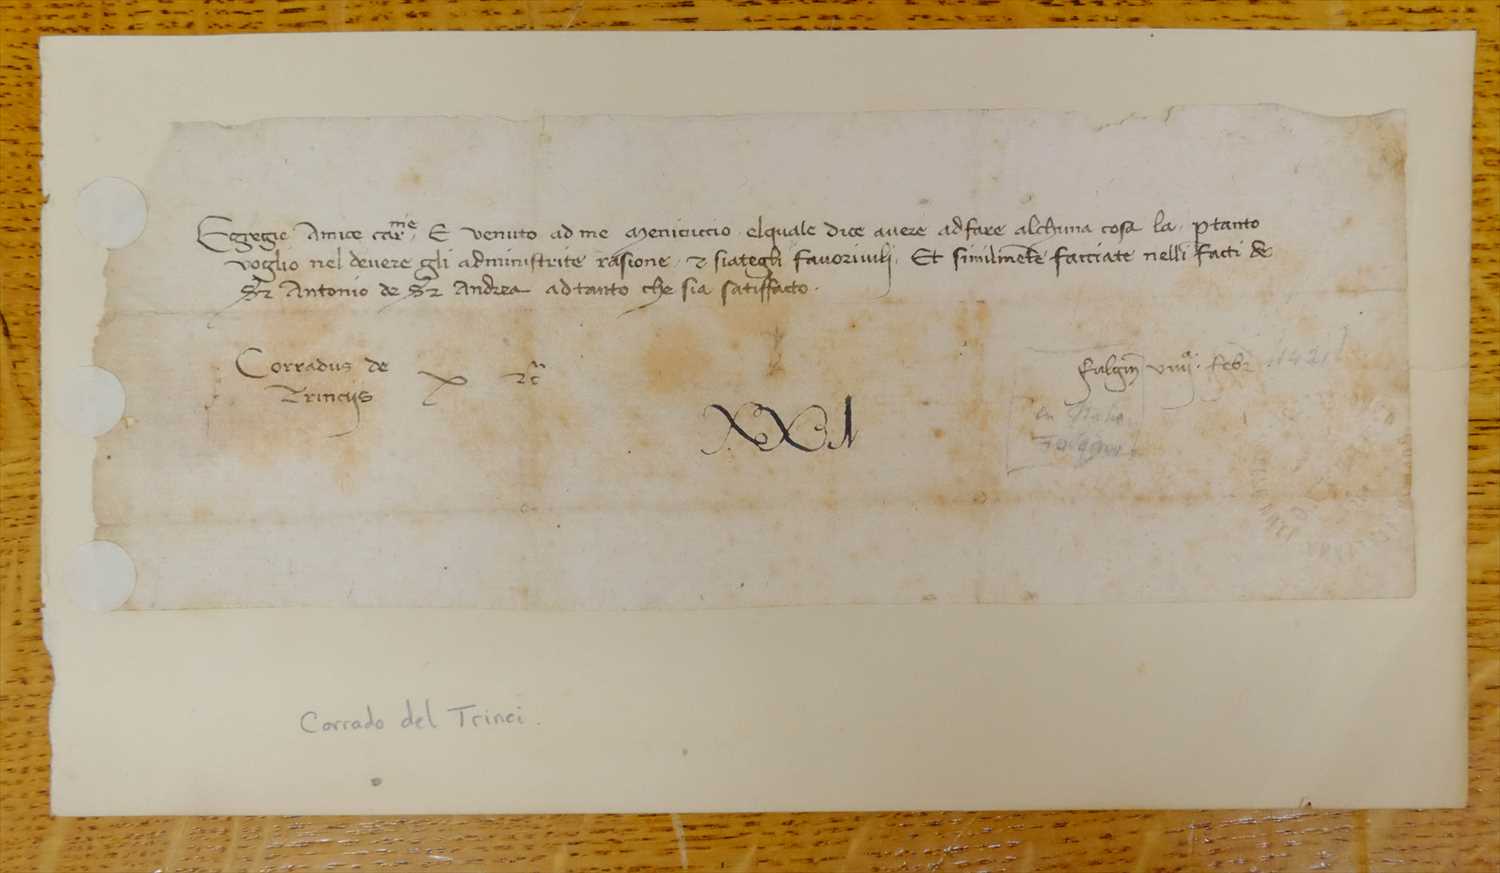 Egregie Amice car.me E venuto ad me Menicuccio elquale dice avere adfare alchuna cosa la. ptanto
voglio nel devere gli administrite rasione. & siategli favorivili. Et similmete facciate nelli facti de
Sr Antonio de Sr Andrea adtanto che sia satisfacto.
Corradus de
Trinciis
fulgin viiij. febr 1421
XXI
in Italia
Corrado del Trinci.